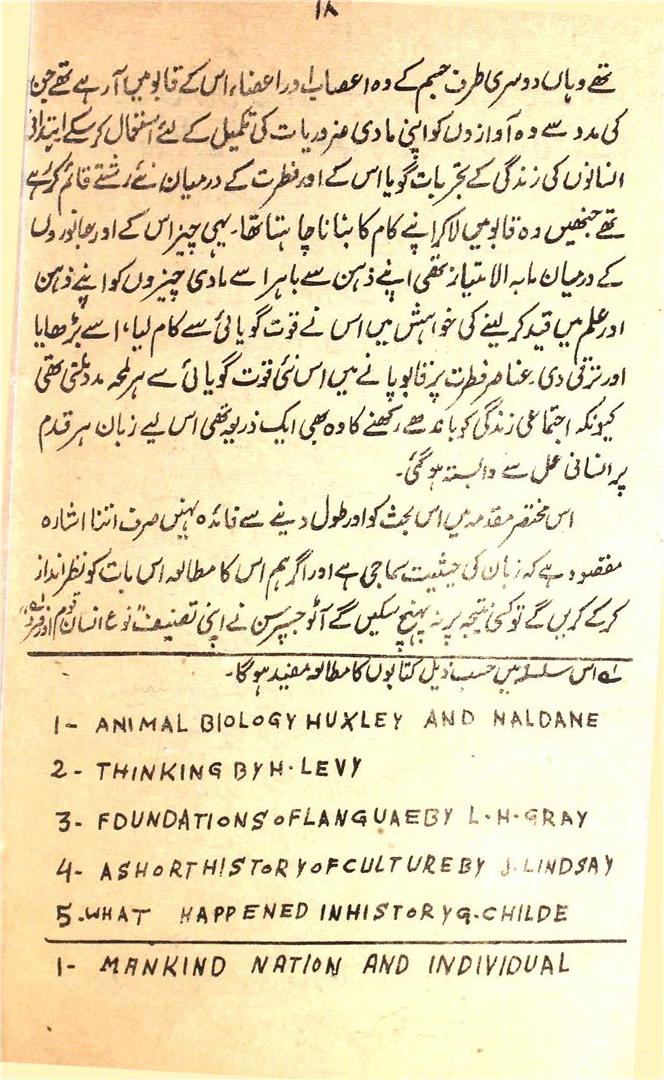 ۱۸
تھے وہاں دوسری طرف جسم کے وہ اعصاب اور اعضاء اس کے قابو میں آ رہے تھے جن
کی مدد سے وہ آوازوں کو اپنی مادی ضروریات کی تکمیل کے لئے استعمال کر سکے ابتدائی
انسانوں کی زندگی کے تجربات گویا اس کے اور فطرت کے درمیان نئے رشتے قائم کر رہے
تھے جنھیں وہ قابو میں لا کر اپنے کام کا بنانا چاہتا تھا۔ یہی چیز اس کے اور جانوروں
کے درمیان مابہ الامتیاز تھی اپنے ذہن سے باہر اسے مادی چیزوں کو اپنے ذہن
اور علم میں قید کر لینے کی خواہش میں اس نے قوت گویائی سے کام لیا، اسے بڑھایا
اور ترقی دی۔ عناصر فطرت پر قابو پانے میں اس نئی قوت گویائی سے ہر لمحہ مدد ملتی تھی
کیونکہ اجتماعی زندگی کو باندھے رکھنے کا وہ بھی ایک ذریعہ تھی اس لیے زبان ہر قدم
پر انسانی عمل سے وابستہ ہو گئی۔
اس مختصر مقدمہ میں اس بحث کو اور طول دینے سے فائدہ نہیں صرف اتنا اشارہ
مقصود ہے کہ زبان کی حیثیت سماجی ہے اور اگر ہم اس کا مطالعہ اس بات کو نظر انداز
کر کے کریں گے تو کسی نتیجہ پر نہ پہنچ سکیں گے آٹو جسپرسن نے اپنی تصنیف "نوع انسان قوم اور فرد"
اس سلسلے میں حسب ذیل کتابوں کا مطالعہ مفید ہوگا۔
1- ANIMAL BIOLOGY HUXLEY AND HALDANE
2- THINKING BY H. LEVY
3- FOUNDATIONS OF LANGUAE BY L. H. GRAY
4- A SHORT HISTORY OF CULTURE BY J. LINDSAY
5. WHAT HAPPENED IN HISTORY G. CHILDE
1- MANKIND NATION AND INDIVIDUAL